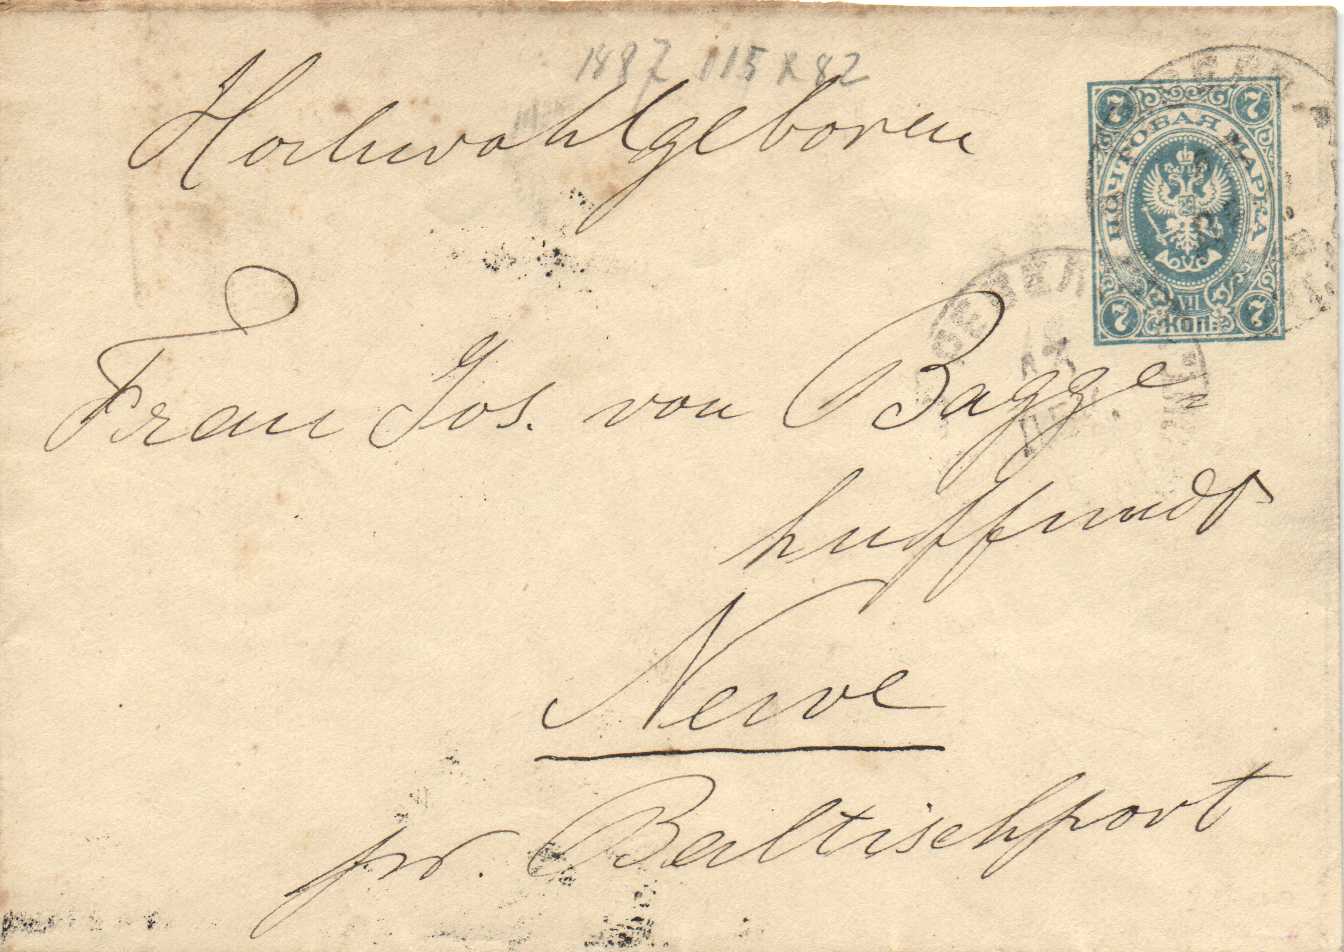 1887 115 x 82
Hochwohlgeboren
7 7
ПОЧТОВАЯ МАРКА
7 VII 7
КОП.
Frau Jos. von Bagge
Newe
pr. Baltischport